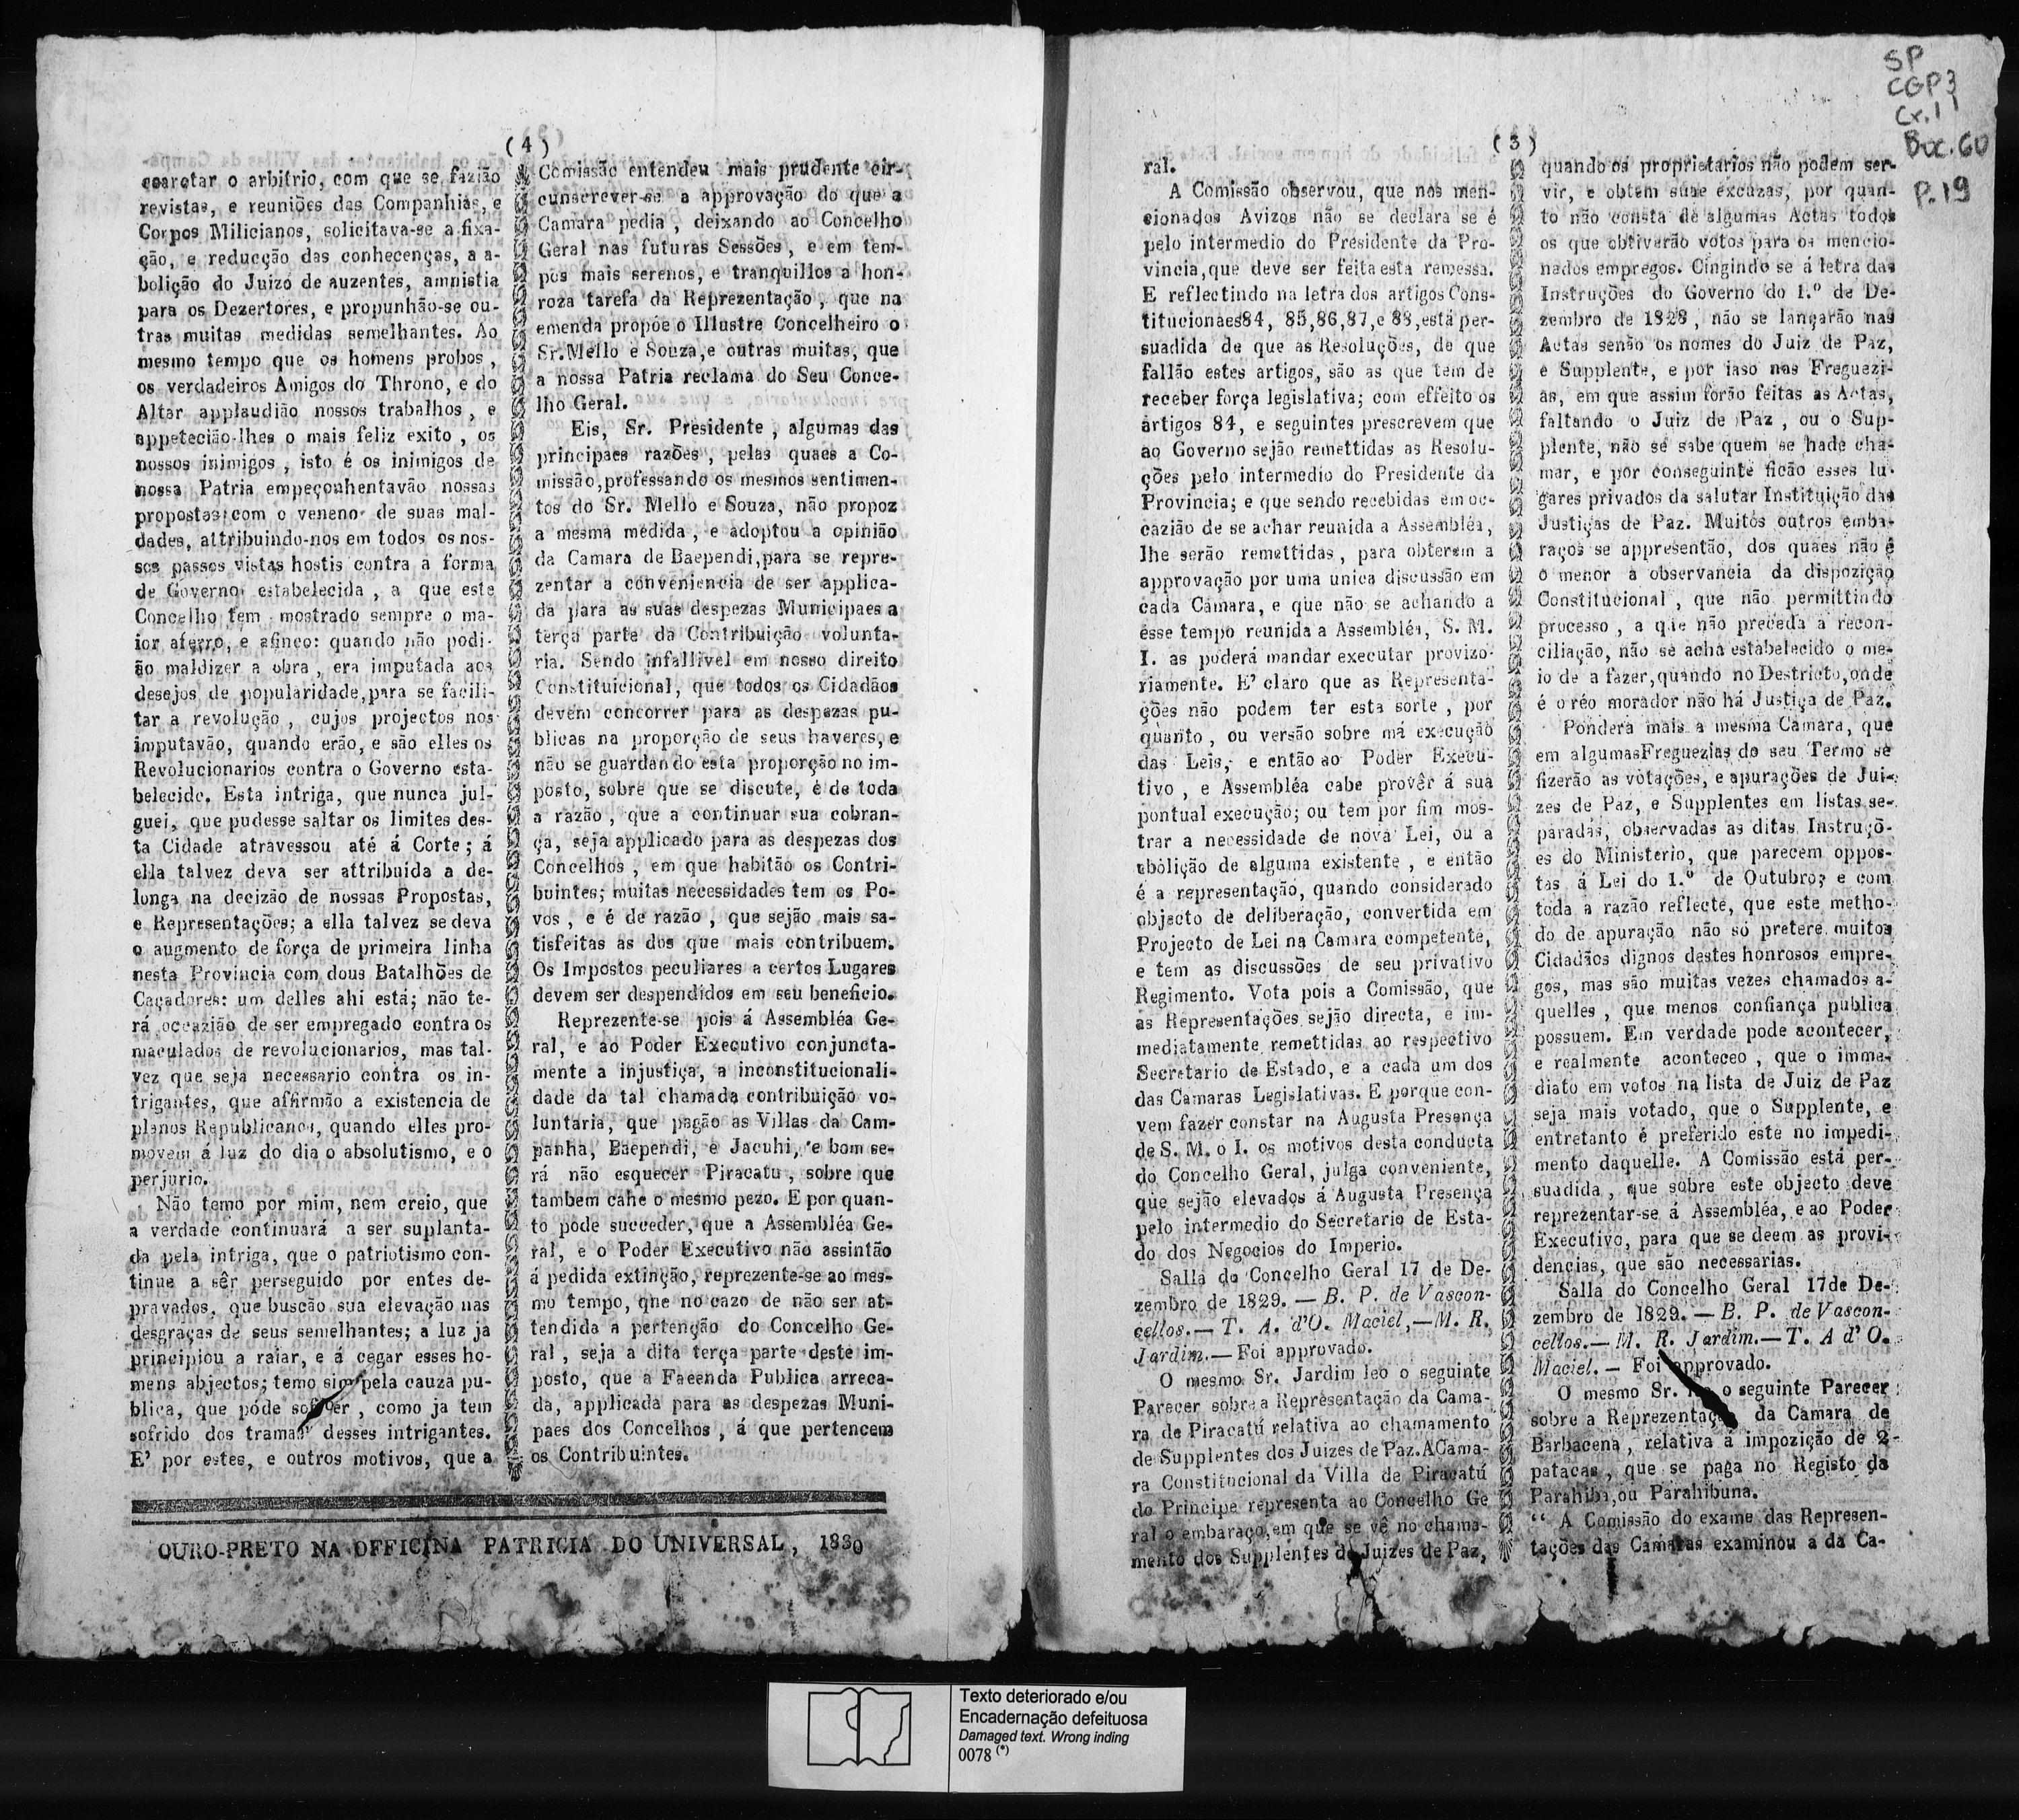 (4)
coarctar o arbitrio, com que se fazião
revistas, e reuniões das Companhias, e
Corpos Milicianos, solicitava-se a fixa-
ção, e reducção das conhecenças, a a-
bolição do Juizo de auzentes, amnistia
para os Dezertores, e propunhão-se ou-
tras muitas medidas semelhantes. Ao
mesmo tempo que os homens probos,
os verdadeiros Amigos do Throno, e do
Altar applaudião nossos trabalhos, e
appetecião-lhes o mais feliz exito, os
nossos inimigos, isto é os inimigos de
nossa Patria empeçonhentavão nossas
propostas com o veneno de suas mal-
dades, attribuindo-nos em todos os nos-
sos passos vistas hostis contra a forma
de Governo estabelecida, a que este
Concelho tem mostrado sempre o ma-
ior aferro, e afinco: quando não podi-
ão maldizer a obra, era imputada aos
desejos de popularidade, para se facili-
tar a revolução, cujos projectos nos
imputavão, quando erão, e são elles os
Revolucionarios contra o Governo esta-
belecido. Esta intriga, que nunca jul-
guei, que pudesse saltar os limites des-
ta Cidade atravessou até á Corte; á
ella talvez deva ser attribuida a de-
longa na decizão de nossas Propostas,
e Representações; a ella talvez se deva
o augmento de força de primeira linha
nesta Provincia com dous Batalhões de
Caçadores: um delles ahi está; não te-
rá occazião de ser empregado contra os
maculados de revolucionarios, mas tal-
vez que seja necessario contra os in-
trigantes, que affirmão a existencia de
planos Republicanos, quando elles pro-
movem á luz do dia o absolutismo, e o
perjurio.
Não temo por mim, nem creio, que
a verdade continuará a ser suplanta-
da pela intriga, que o patriotismo con-
tinue a sêr perseguido por entes de-
pravados, que buscão sua elevação nas
desgraças de seus semelhantes; a luz ja
principiou a raiar, e á cegar esses ho-
mens abjectos; temo sim pela cauza pu-
blica, que póde soffrer, como ja tem
sofrido dos tramas desses intrigantes.
E' por estes, e outros motivos, que a
Comissão entendeu mais prudente cir-
cunscrever-se a approvação do que a
Camara pedia, deixando ao Concelho
Geral nas futuras Sessões, e em tem-
pos mais serenos, e tranquillos a hon-
roza tarefa da Reprezentação, que na
emenda propõe o Illustre Concelheiro o
Sr. Mello e Souza, e outras muitas, que
a nossa Patria reclama do Seu Conce-
lho Geral.
Eis, Sr. Presidente, algumas das
principaes razões, pelas quaes a Co-
missão, professando os mesmos sentimen-
tos do Sr. Mello e Souza, não propoz
a mesma medida, e adoptou a opinião
da Camara de Baependi, para se repre-
zentar a conveniencia de ser applica-
da para as suas despezas Municipaes a
terça parte da Contribuição volunta-
ria. Sendo infallivel em nosso direito
Constituicional, que todos os Cidadãos
devem concorrer para as despezas pu-
blicas na proporção de seus haveres, e
não se guardando esta proporção no im-
posto, sobre que se discute, é de toda
a razão, que a continuar sua cobran-
ça, seja applicado para as despezas dos
Concelhos, em que habitão os Contri-
buintes; muitas necessidades tem os Po-
vos, e é de razão, que sejão mais sa-
tisfeitas as dos que mais contribuem.
Os Impostos peculiares a certos Lugares
devem ser despendidos em seu beneficio.
Reprezente-se pois á Assembléa Ge-
ral, e ao Poder Executivo conjuncta-
mente a injustiça, a inconstitucionali-
dade da tal chamada contribuição vo-
luntaria, que pagão as Villas da Cam-
panha, Baependi, e Jacuhi, e bom se-
rá não esquecer Piracatu, sobre que
tambem cahe o mesmo pezo. E por quan-
to póde succeder, que a Assembléa Ge-
ral, e o Poder Executivo não assintão
á pedida extinção, reprezente-se ao mes-
mo tempo, qne no cazo de não ser at-
tendida a pertenção do Concelho Ge-
ral, seja a dita terça parte deste im-
posto, que a Faeenda Publica arreca-
da, applicada para as despezas Muni-
paes dos Concelhos, á que pertencem
os Contribuintes.
OURO-PRETO NA OFFICINA PATRICIA DO UNIVERSAL, 1830
(3)
ral.
A Comissão observou, que nos men-
cionados Avizos não se declara se é
pelo intermedio do Presidente da Pro-
vincia, que deve ser feita esta remessa.
E reflectindo na letra dos artigos Cons-
titucionaes 84, 85, 86, 87, e 88, está per-
suadida de que as Resoluções, de que
fallão estes artigos, são as que tem de
receber força legislativa; com effeito os
artigos 84, e seguintes prescrevem que
ao Governo sejão remettidas as Resolu-
ções pelo intermedio do Presidente da
Provincia; e que sendo recebidas em oc-
cazião de se achar reunida a Assembléa,
lhe serão remettidas, para obterem a
approvação por uma unica discussão em
cada Câmara, e que não se achando a
esse tempo reunida a Assembléa, S. M.
I. as poderá mandar executar provizo-
riamente. E' claro que as Representa-
ções não podem ter esta sorte, por
quanto, ou versão sobre má execução
das Leis, e então ao Poder Execu-
tivo, e Assembléa cabe provêr á sua
pontual execução; ou tem por fim mos-
trar a necessidade de nova Lei, ou a
abolição de alguma existente, e então
é a representação, quando considerado
objecto de deliberação, convertida em
Projecto de Lei na Camara competente,
e tem as discussões de seu privativo
Regimento. Vota pois a Comissão, que
as Representações sejão directa, e im-
mediatamente remettidas ao respectivo
Secretario de Estado, e a cada um dos
das Camaras Legislativas. E porque con-
vem fazer constar na Augusta Presença
de S. M. o I. os motivos desta conducta
do Concelho Geral, julga conveniente,
que sejão elevados á Augusta Presença
pelo intermedio do Secretario de Esta-
do dos Negocios do Imperio.
Salla do Concelho Geral 17 de De-
zembro de 1829. — B. P. de Vascon-
cellos. — T. A. d'O. Maciel, — M. R.
Jardim. — Foi approvado.
O mesmo Sr. Jardim leo o seguinte
Parecer sobre a Representação da Cama-
ra de Piracatú relativa ao chamamento
de Supplentes dos Juizes de Paz. A Cama-
ra Constitucional da Villa de Piracatú
do Principe representa ao Concelho Ge
ral o embaraço, em que se vê no chama-
mento dos Supplentes de Juizes de Paz,
quando os proprietarios não podem ser-
vir, e obtem suas excuzas, por quan-
to não consta de algumas Actas todos
os que obtiverão votos para os mencio-
nados empregos. Cingindo se á letra das
Instruções do Governo do 1.º de De-
zembro de 1828, não se lançarão nas
Actas senão os nomes do Juiz de Paz,
e Supplente, e por isso nas Freguezi-
as, em que assim forão feitas as Actas,
faltando o Juiz de Paz, ou o Sup-
plente, não se sabe quem se hade cha-
mar, e por conseguinte ficão esses lu-
gares privados da salutar Instituição das
Justiças de Paz. Muitos outros emba-
raços se appresentão, dos quaes não é
o menor a observancia da dispozição
Constitucional, que não permittindo
processo, a que não preceda a recon-
ciliação, não se acha estabelecido o me-
io de a fazer, quando no Destricto, onde
é o réo morador não há Justiça de Paz.
Pondera mais a mesma Camara, que
em algumas Freguezias do seu Termo se
fizerão as votações, e apurações de Jui-
zes de Paz, e Supplentes em listas se-
paradas, observadas as ditas Instruçõ-
es do Ministerio, que parecem oppos-
tas á Lei do 1.º de Outubro; e com
toda a razão reflecte, que este metho-
do de apuração não só pretere muitos
Cidadãos dignos destes honrosos empre-
gos, mas são muitas vezes chamados a-
quelles, que menos confiança publica
possuem. Em verdade pode acontecer,
e realmente aconteceo, que o imme-
diato em votos na lista de Juiz de Paz
seja mais votado, que o Supplente, e
entretanto é preferido este no impedi-
mento daquelle. A Comissão está per-
suadida, que sobre este objecto deve
reprezentar-se á Assembléa, e ao Poder
Executivo, para que se deem as provi-
dencias, que são necessarias.
Salla do Concelho Geral 17 de De-
zembro de 1829. — B. P. de Vascon-
cellos. — M. R. Jardim. — T. A d' O.
Maciel. — Foi approvado.
O mesmo Sr. o seguinte Parecer
sobre a Reprezentação da Camara de
Barbacena, relativa á impozição de 2
patacas, que se paga no Registo da
Parahiba, ou Parahibuna.
“ A Comissão do exame das Represen-
tações das Camaras examinou a da Ca-
SP
CGP3
Cx.11
Doc. 60
P.19
Texto deteriorado e/ou
Encadernação defeituosa
Damaged text. Wrong inding
0078 (*)